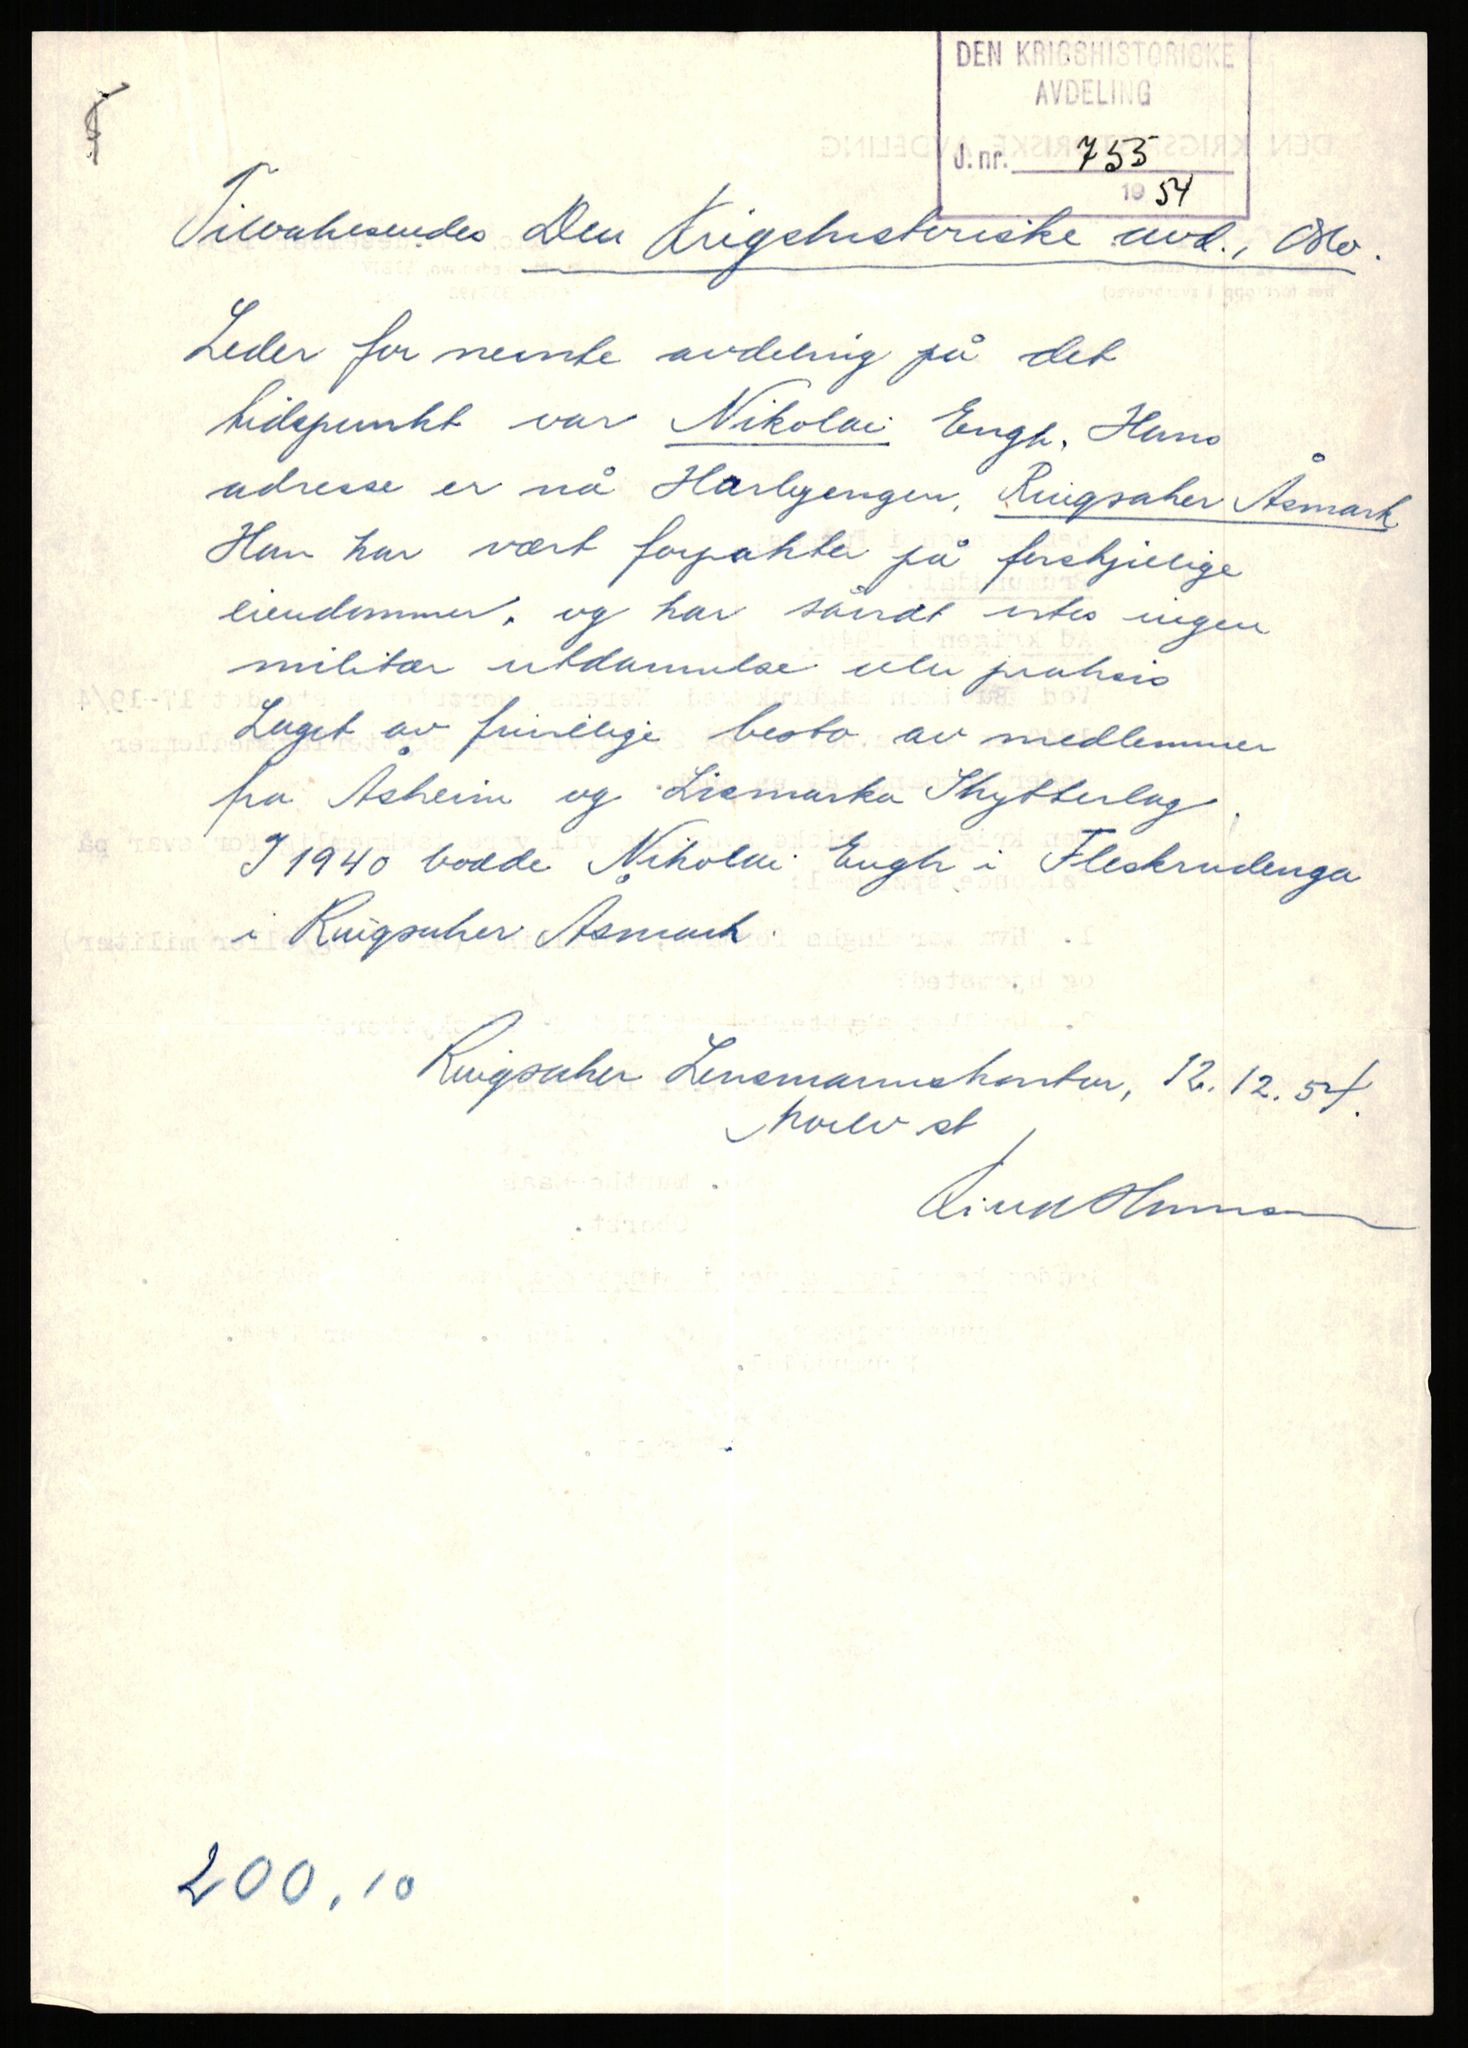 DEN KRIGSHISTORISKE
AVDELING
J. nr. 755
19 54
Tilbakesendes Den Krigshistoriske avd., Oslo.
Leder for nevnte avdeling på det
tidspunkt var Nikolai Engh. Hans
adresse er nå Harbyengen, Ringsaker Åsmark.
Han har vært forpakter på forskjellige
eiendommer, og har såvidt vites ingen
militær utdannelse eller praksis
Laget av frivillige besto av medlemmer
fra Åsheim og Lismarka Skytterlag.
I 1940 bodde Nikolai Engh i Fleskrudenga
i Ringsaker Åsmark.
Ringsaker Lensmannskontor, 12.12.54.
Moelv st
200.10